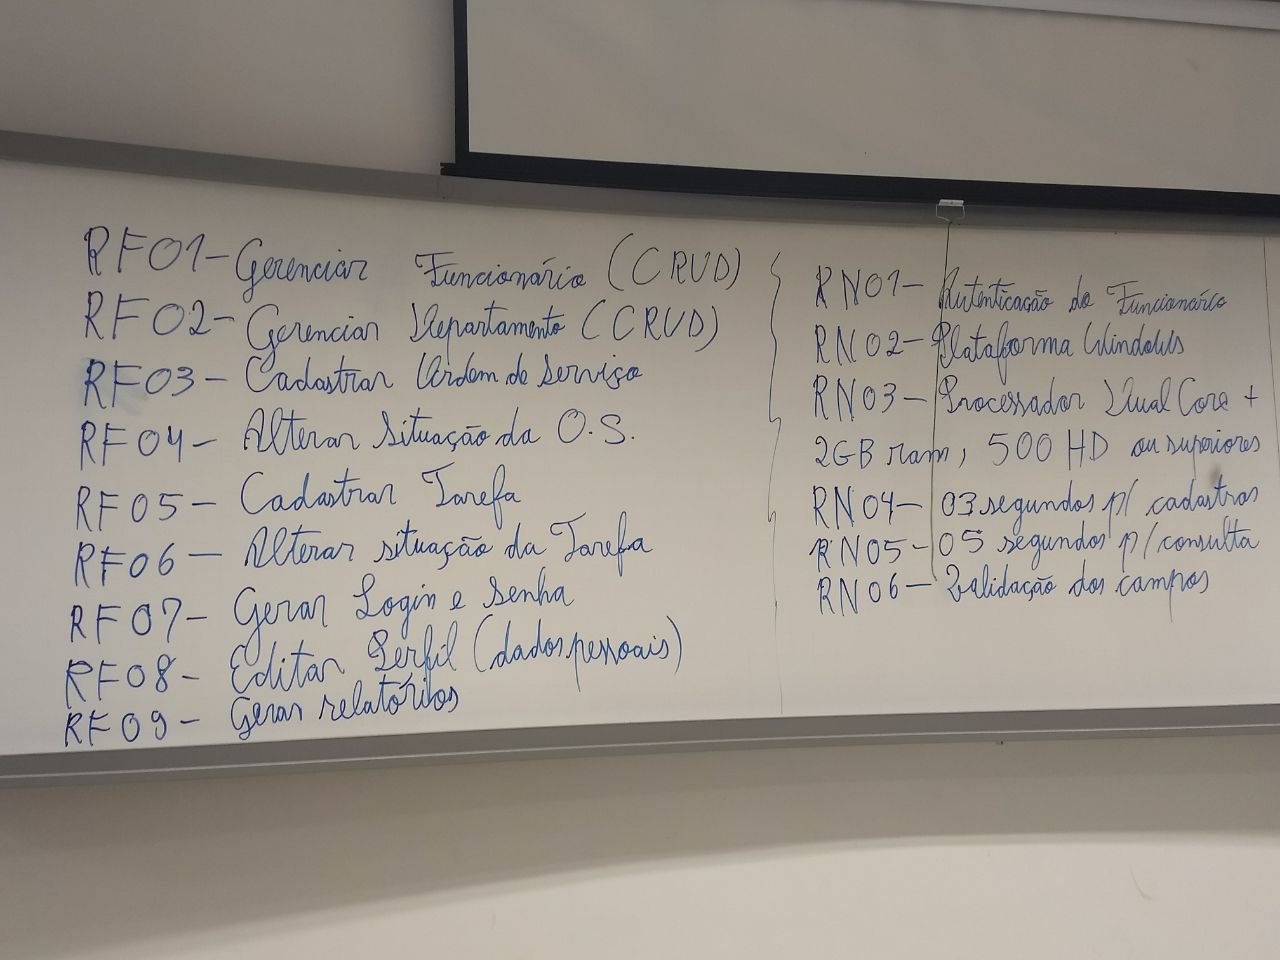 RF01- Gerenciar Funcionário (CRUD)
RF02- Gerenciar Departamento (CRUD)
RF03- Cadastrar Ordem de serviço
RF04- Alterar situação da O.S.
RF05- Cadastrar Tarefa
RF06- Alterar situação da Tarefa
RF07- Gerar Login e senha
RF08- Editar Perfil (dados pessoais)
RF09- Gerar relatórios
RN01- Autenticação do Funcionário
RN02- Plataforma Windows
RN03- Processador Dual Core +
2GB ram, 500 HD ou superiores
RN04- 03 segundos p/ cadastros
RN05- 05 segundos p/ consulta
RN06- Validação dos campos